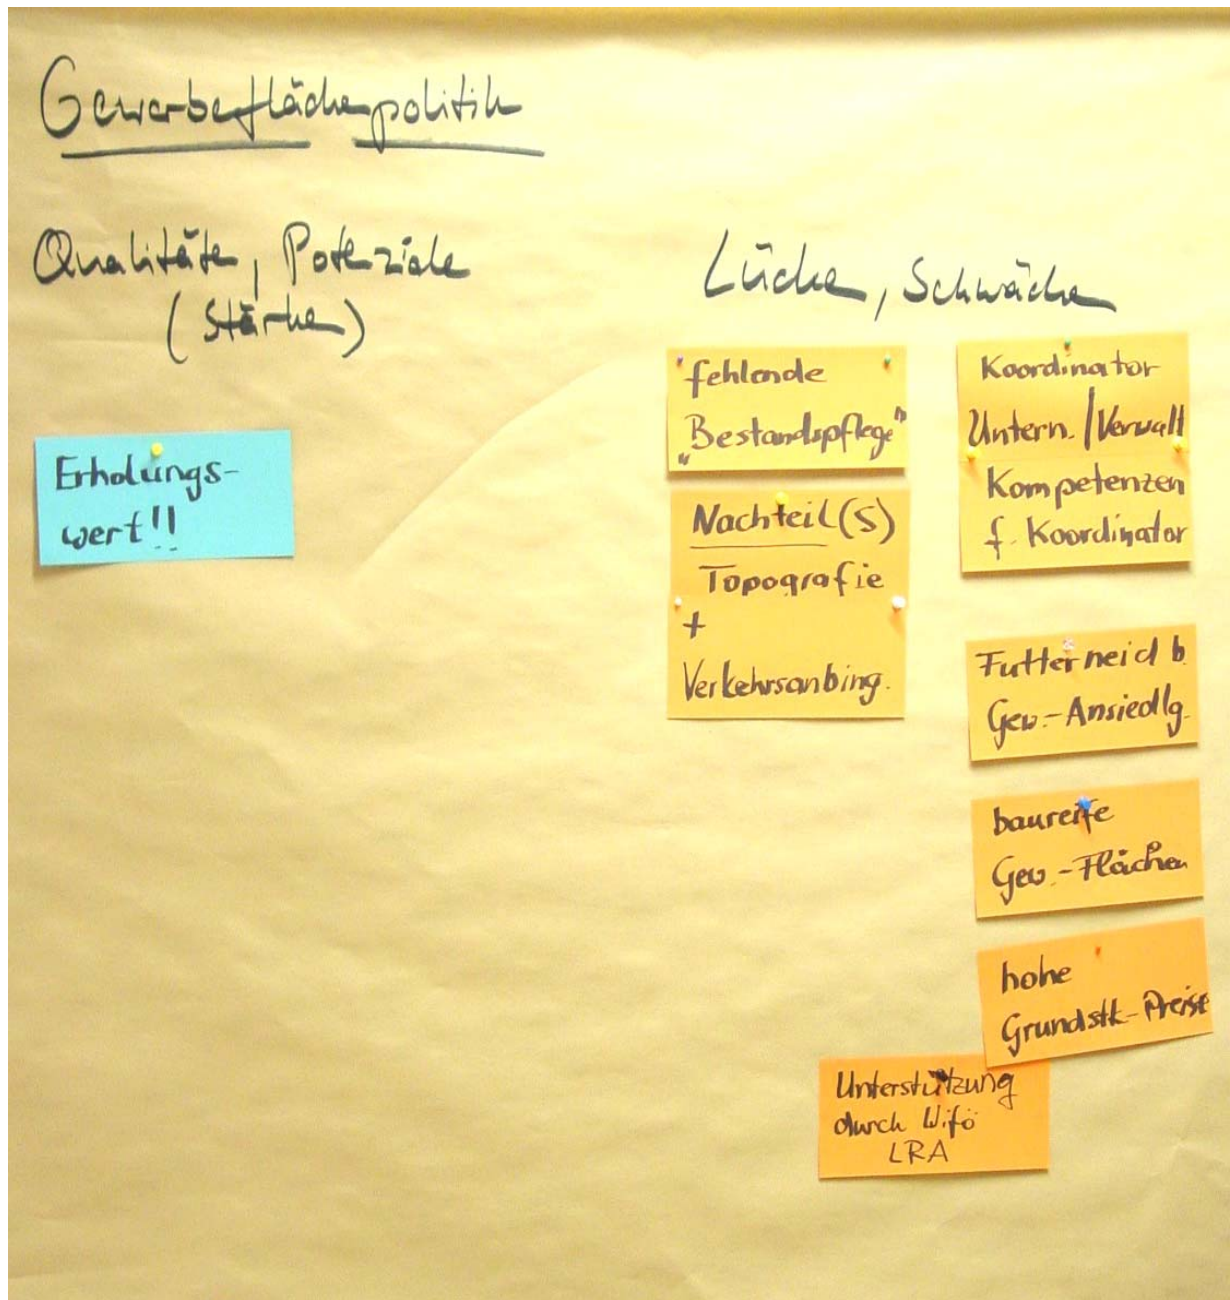 Gewerbeflächenpolitik
Qualitäten, Potenziale
(Stärken)
Erholungs-
wert!!
Lücken, Schwächen
fehlende
„Bestandspflege"
Nachteil(S)
Topografie
+
Verkehrsanbing.
Koordinator
Untern./Verwalt
Kompetenzen
f. Koordinator
Futterneid b.
Gew.-Ansiedlg.
baureife
Gew.-Flächen
hohe
Grundstk-Preise
Unterstützung
durch Wifö
LRA